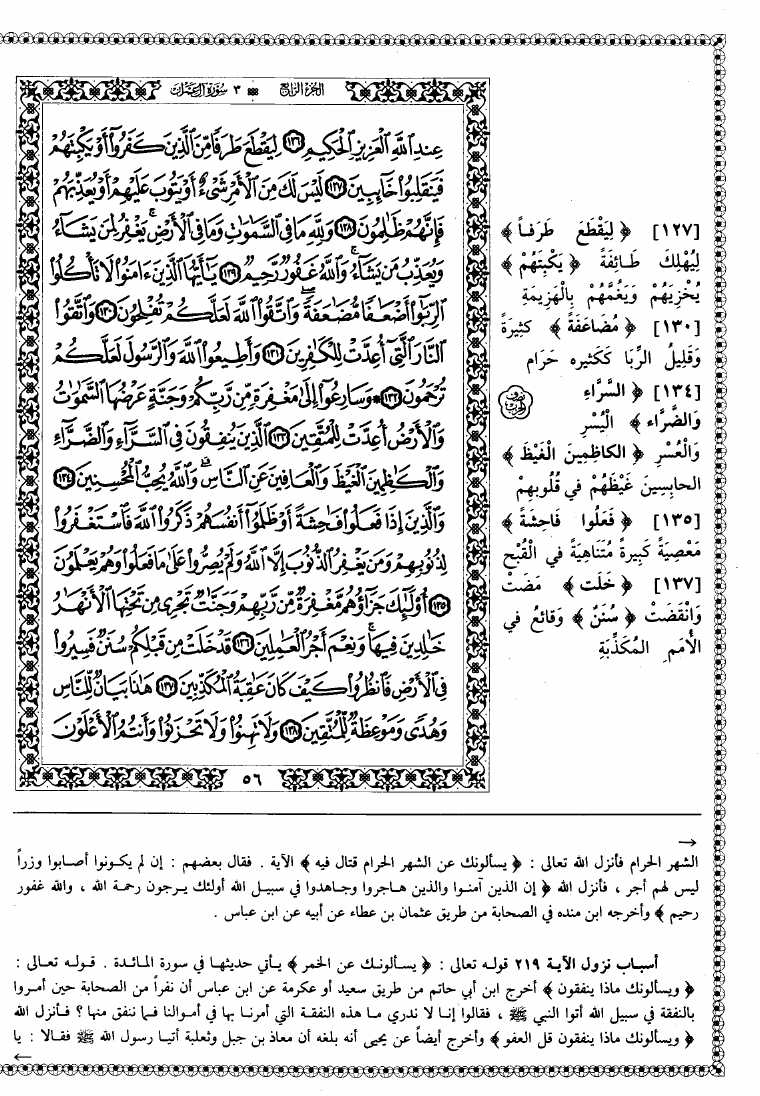 الجزء الرابع
٣ سورة آل عمران
عِندِ ٱللَّهِ ٱلْعَزِيزِ ٱلْحَكِيمِ ١٢٦ لِيَقْطَعَ طَرَفًا مِّنَ ٱلَّذِينَ كَفَرُوٓا۟ أَوْ يَكْبِتَهُمْ
فَيَنقَلِبُوا۟ خَآئِبِينَ ١٢٧ لَيْسَ لَكَ مِنَ ٱلْأَمْرِ شَىْءٌ أَوْ يَتُوبَ عَلَيْهِمْ أَوْ يُعَذِّبَهُمْ
فَإِنَّهُمْ ظَٰلِمُونَ ١٢٨ وَلِلَّهِ مَا فِى ٱلسَّمَٰوَٰتِ وَمَا فِى ٱلْأَرْضِ ۚ يَغْفِرُ لِمَن يَشَآءُ
وَيُعَذِّبُ مَن يَشَآءُ ۚ وَٱللَّهُ غَفُورٌ رَّحِيمٌ ١٢٩ يَٰٓأَيُّهَا ٱلَّذِينَ ءَامَنُوا۟ لَا تَأْكُلُوا۟
ٱلرِّبَوٰٓا۟ أَضْعَٰفًا مُّضَٰعَفَةً ۖ وَٱتَّقُوا۟ ٱللَّهَ لَعَلَّكُمْ تُفْلِحُونَ ١٣٠ وَٱتَّقُوا۟
ٱلنَّارَ ٱلَّتِىٓ أُعِدَّتْ لِلْكَٰفِرِينَ ١٣١ وَأَطِيعُوا۟ ٱللَّهَ وَٱلرَّسُولَ لَعَلَّكُمْ
تُرْحَمُونَ ١٣٢ ۞ وَسَارِعُوٓا۟ إِلَىٰ مَغْفِرَةٍ مِّن رَّبِّكُمْ وَجَنَّةٍ عَرْضُهَا ٱلسَّمَٰوَٰتُ
وَٱلْأَرْضُ أُعِدَّتْ لِلْمُتَّقِينَ ١٣٣ ٱلَّذِينَ يُنفِقُونَ فِى ٱلسَّرَّآءِ وَٱلضَّرَّآءِ
وَٱلْكَٰظِمِينَ ٱلْغَيْظَ وَٱلْعَافِينَ عَنِ ٱلنَّاسِ ۗ وَٱللَّهُ يُحِبُّ ٱلْمُحْسِنِينَ ١٣٤
وَٱلَّذِينَ إِذَا فَعَلُوا۟ فَٰحِشَةً أَوْ ظَلَمُوٓا۟ أَنفُسَهُمْ ذَكَرُوا۟ ٱللَّهَ فَٱسْتَغْفَرُوا۟
لِذُنُوبِهِمْ وَمَن يَغْفِرُ ٱلذُّنُوبَ إِلَّا ٱللَّهُ وَلَمْ يُصِرُّوا۟ عَلَىٰ مَا فَعَلُوا۟ وَهُمْ يَعْلَمُونَ
١٣٥ أُو۟لَٰٓئِكَ جَزَآؤُهُم مَّغْفِرَةٌ مِّن رَّبِّهِمْ وَجَنَّٰتٌ تَجْرِى مِن تَحْتِهَا ٱلْأَنْهَٰرُ
خَٰلِدِينَ فِيهَا ۚ وَنِعْمَ أَجْرُ ٱلْعَٰمِلِينَ ١٣٦ قَدْ خَلَتْ مِن قَبْلِكُمْ سُنَنٌ فَسِيرُوا۟
فِى ٱلْأَرْضِ فَٱنظُرُوا۟ كَيْفَ كَانَ عَٰقِبَةُ ٱلْمُكَذِّبِينَ ١٣٧ هَٰذَا بَيَانٌ لِّلنَّاسِ
وَهُدًى وَمَوْعِظَةٌ لِّلْمُتَّقِينَ ١٣٨ وَلَا تَهِنُوا۟ وَلَا تَحْزَنُوا۟ وَأَنتُمُ ٱلْأَعْلَوْنَ
٥٦
[١٢٧] ﴿ لِيَقْطَعَ طَرَفاً ﴾
لِيُهْلِكَ طَائِفَةً ﴿ يَكْبِتَهُمْ ﴾
يُخْزِيَهُمْ وَيَغُمَّهُمْ بِالْهَزِيمَةِ
[١٣٠] ﴿ مُضَاعَفَةً ﴾ كَثِيرَةً
وَقَلِيلُ الرِّبَا كَكَثيره حَرَام
[١٣٤] ﴿ السَّرَّاءِ
وَالضَّراء ﴾ الْيُسْرِ
وَالْعُسْرِ ﴿ الكاظِمِينَ الْغَيْظَ ﴾
الحابِسِينَ غَيْظَهُمْ في قُلُوبِهِمْ
[١٣٥] ﴿ فَعَلُوا فاحِشَةً ﴾
مَعْصِيَةً كَبِيرةً مُتَنَاهِيَةً في الْقُبْح
[١٣٧] ﴿ خَلَت ﴾ مَضَتْ
وَانْقَضَتْ ﴿ سُنَنٌ ﴾ وَقائعُ في
الأُمَمِ المُكَذِّبَةِ
الشهر الحرام فأنزل الله تعالى : ﴿ يسألونك عن الشهر الحرام قتال فيه ﴾ الآية . فقال بعضهم : إن لم يكونوا أصابوا وزراً
ليس لهم أجر ، فأنزل الله ﴿ إن الذين آمنوا والذين هاجروا وجاهدوا في سبيل الله أولئك يرجون رحمة الله ، والله غفور
رحيم ﴾ وأخرجه ابن منده في الصحابة من طريق عثمان بن عطاء عن أبيه عن ابن عباس .
أسباب نزول الآية ٢١٩ قوله تعالى : ﴿ يسألونك عن الخمر ﴾ يأتي حديثها في سورة المائدة . قوله تعالى :
﴿ ويسألونك ماذا ينفقون ﴾ أخرج ابن أبي حاتم من طريق سعيد أو عكرمة عن ابن عباس أن نفراً من الصحابة حين أمروا
بالنفقة في سبيل الله أتوا النبي ﷺ ، فقالوا إنا لا ندري ما هذه النفقة التي أمرنا بها في أموالنا فما ننفق منها ؟ فأنزل الله
﴿ ويسألونك ماذا ينفقون قل العفو ﴾ وأخرج أيضاً عن يحيى أنه بلغه أن معاذ بن جبل وثعلبة أتيا رسول الله ﷺ فقالا : يا